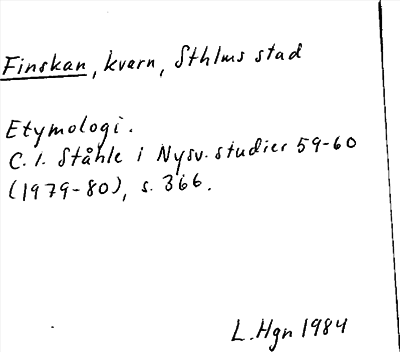 Finskan, kvarn, Sthlms stad
Etymologi.
C. I. Ståhle i Nysv. studier 59-60
(1979-80), s. 366.
L. Hgn 1984